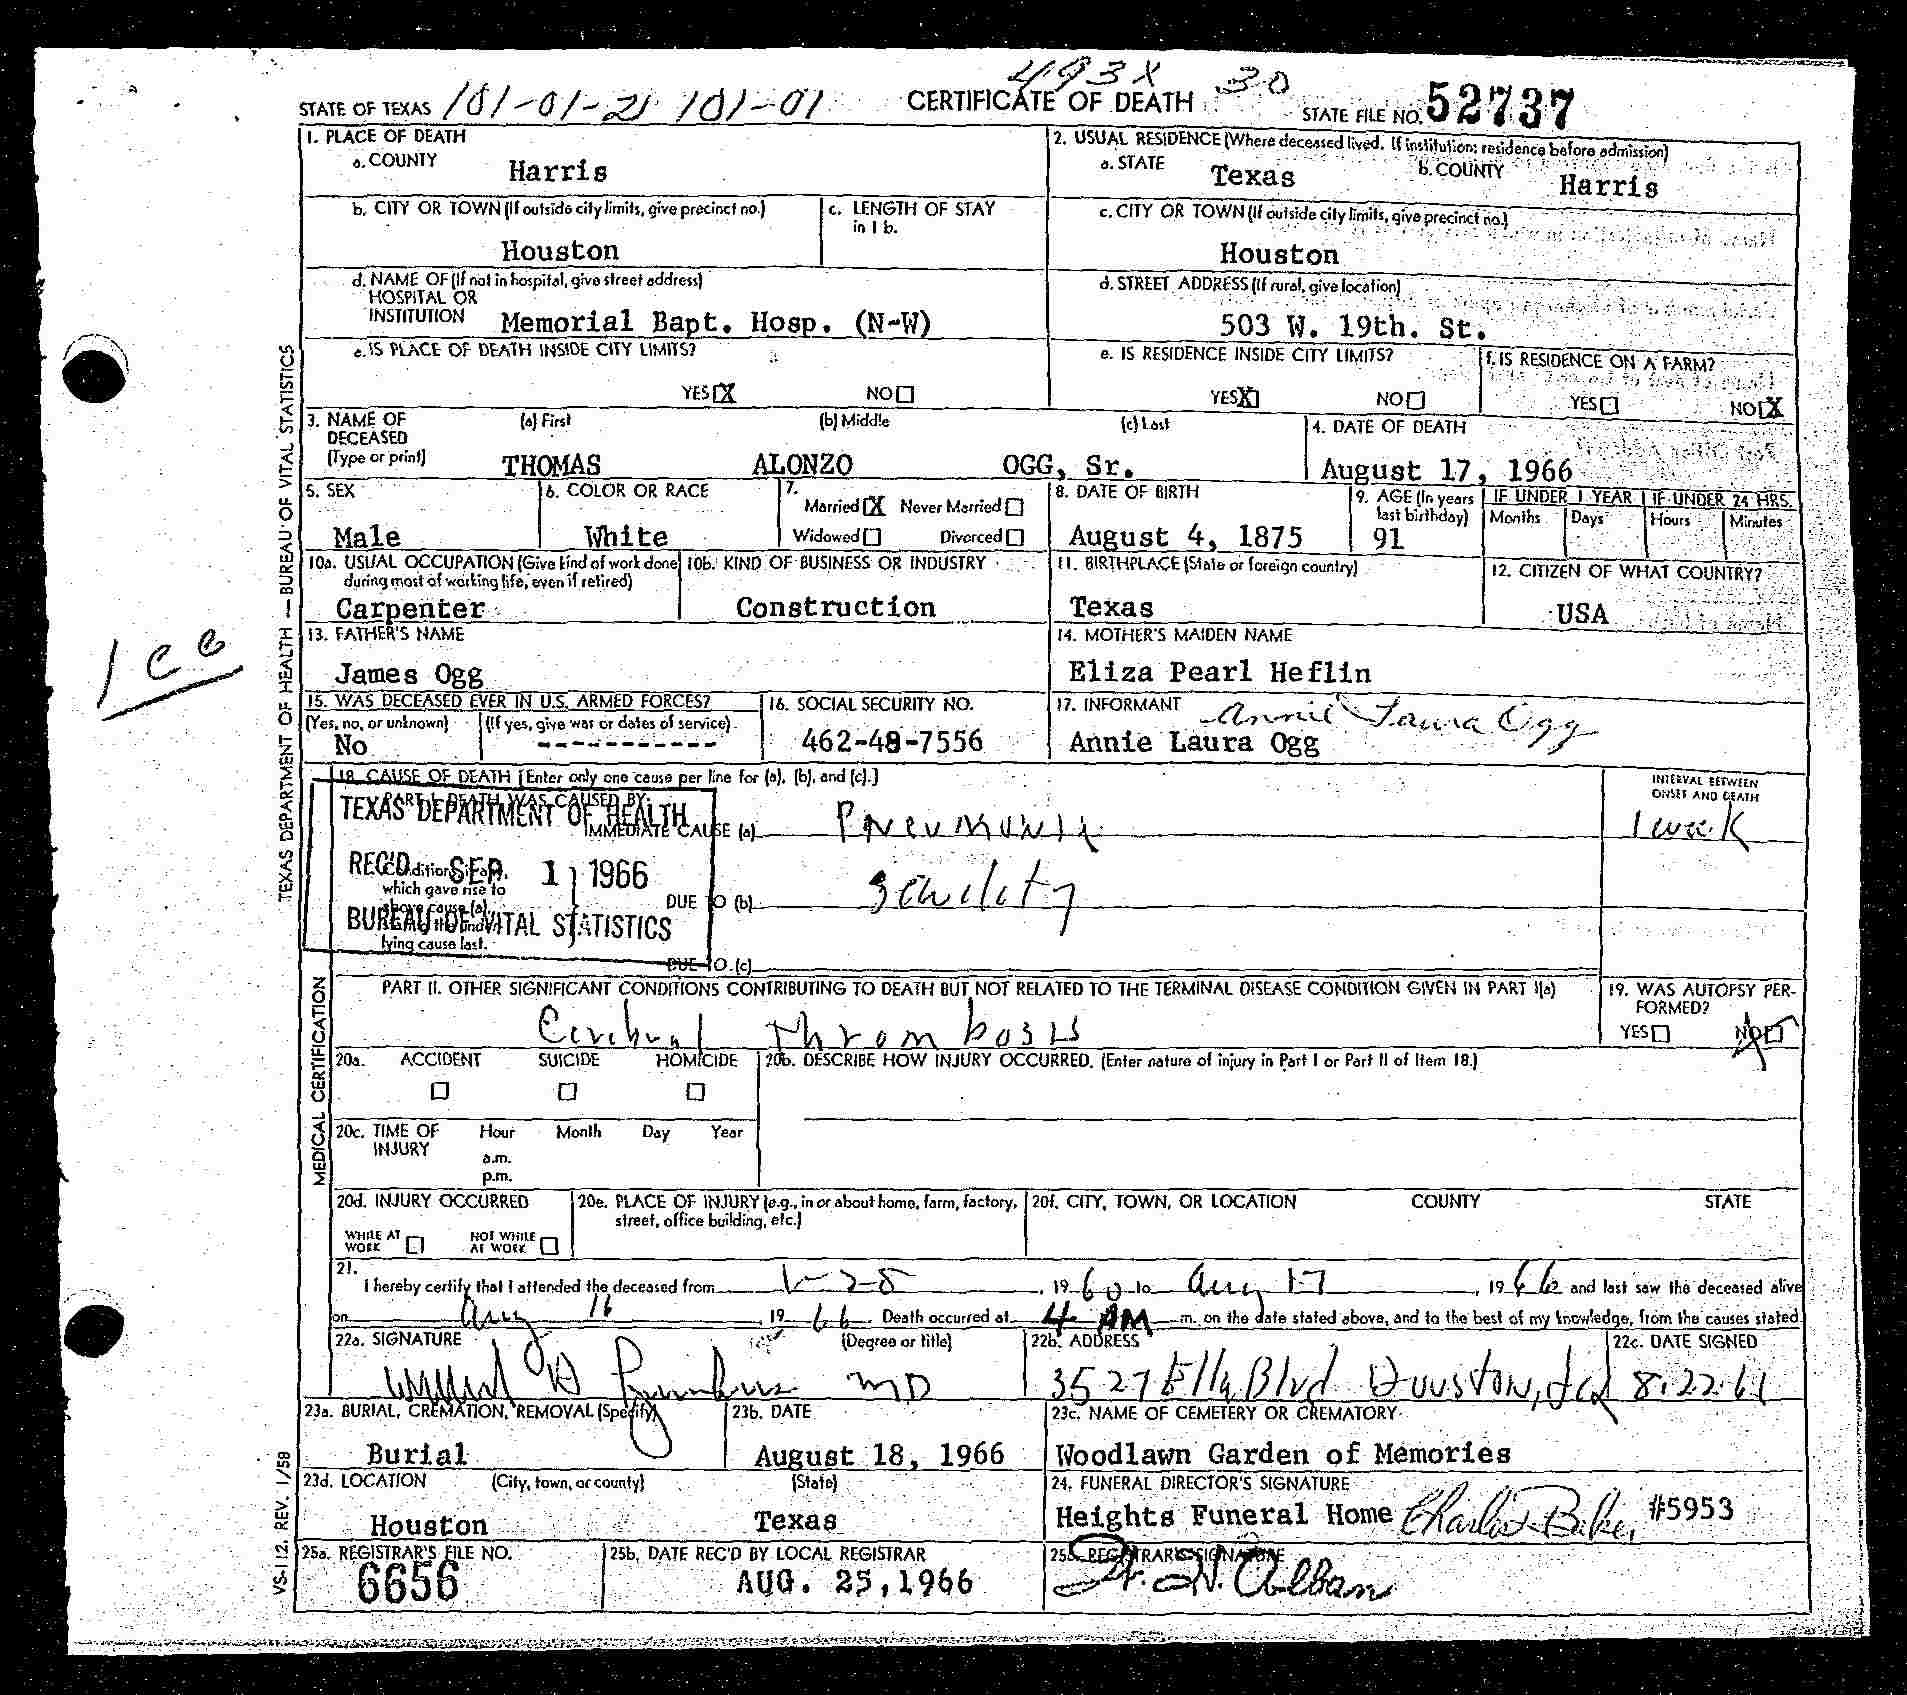 493X 30
STATE OF TEXAS 101-01-21 101-01 CERTIFICATE OF DEATH STATE FILE NO. 52737
1. PLACE OF DEATH
a. COUNTY Harris
2. USUAL RESIDENCE (Where deceased lived. If institution: residence before admission)
a. STATE Texas b. COUNTY Harris
b. CITY OR TOWN (If outside city limits, give precinct no.) Houston
c. LENGTH OF STAY in 1 b.
c. CITY OR TOWN (If outside city limits, give precinct no.) Houston
d. NAME OF (If not in hospital, give street address)
HOSPITAL OR
INSTITUTION Memorial Bapt. Hosp. (N-W)
d. STREET ADDRESS (If rural, give location)
503 W. 19th. St.
e. IS PLACE OF DEATH INSIDE CITY LIMITS?
YES X NO
e. IS RESIDENCE INSIDE CITY LIMITS?
YES X NO
f. IS RESIDENCE ON A FARM?
YES NO X
3. NAME OF DECEASED (Type or print)
(a) First (b) Middle (c) Last
THOMAS ALONZO OGG, Sr.
4. DATE OF DEATH
August 17, 1966
5. SEX
Male
6. COLOR OR RACE
White
7. Married X Never Married
Widowed Divorced
8. DATE OF BIRTH
August 4, 1875
9. AGE (In years last birthday)
91
IF UNDER 1 YEAR IF UNDER 24 HRS.
Months Days Hours Minutes
10a. USUAL OCCUPATION (Give kind of work done during most of working life, even if retired)
Carpenter
10b. KIND OF BUSINESS OR INDUSTRY
Construction
11. BIRTHPLACE (State or foreign country)
Texas
12. CITIZEN OF WHAT COUNTRY?
USA
13. FATHER'S NAME
James Ogg
14. MOTHER'S MAIDEN NAME
Eliza Pearl Heflin
15. WAS DECEASED EVER IN U.S. ARMED FORCES?
(Yes, no, or unknown) (If yes, give war or dates of service)
No ------------
16. SOCIAL SECURITY NO.
462-48-7556
17. INFORMANT Annie Laura Ogg
Annie Laura Ogg
18. CAUSE OF DEATH [Enter only one cause per line for (a), (b), and (c).]
INTERVAL BETWEEN ONSET AND DEATH
PART I. DEATH WAS CAUSED BY:
IMMEDIATE CAUSE (a) Pneumonia 1 week
which gave rise to
above cause (a)
lying cause last.
DUE TO (b) Senility
DUE TO (c)
TEXAS DEPARTMENT OF HEALTH
REC'D SEP 1 1966
BUREAU OF VITAL STATISTICS
PART II. OTHER SIGNIFICANT CONDITIONS CONTRIBUTING TO DEATH BUT NOT RELATED TO THE TERMINAL DISEASE CONDITION GIVEN IN PART I(a)
Cerebral Thrombosis
19. WAS AUTOPSY PERFORMED?
YES NO
20a. ACCIDENT SUICIDE HOMICIDE
20b. DESCRIBE HOW INJURY OCCURRED. (Enter nature of injury in Part I or Part II of Item 18.)
20c. TIME OF INJURY Hour Month Day Year
a.m.
p.m.
20d. INJURY OCCURRED
WHILE AT WORK NOT WHILE AT WORK
20e. PLACE OF INJURY (e.g., in or about home, farm, factory, street, office building, etc.)
20f. CITY, TOWN, OR LOCATION COUNTY STATE
21.
I hereby certify that I attended the deceased from 1-28, 1960 to Aug 17, 1966 and last saw the deceased alive
on Aug 16, 1966. Death occurred at 4 AM m. on the date stated above, and to the best of my knowledge, from the causes stated.
22a. SIGNATURE (Degree or title)
MD
22b. ADDRESS
3527 Ella Blvd Houston,
22c. DATE SIGNED
8-22-66
23a. BURIAL, CREMATION, REMOVAL (Specify)
Burial
23b. DATE
August 18, 1966
23c. NAME OF CEMETERY OR CREMATORY
Woodlawn Garden of Memories
23d. LOCATION (City, town, or county) (State)
Houston Texas
24. FUNERAL DIRECTOR'S SIGNATURE
Heights Funeral Home Baker #5953
25a. REGISTRAR'S FILE NO.
6656
25b. DATE REC'D BY LOCAL REGISTRAR
AUG. 25, 1966
25c. REGISTRAR'S SIGNATURE
Alban
TEXAS DEPARTMENT OF HEALTH — BUREAU OF VITAL STATISTICS
MEDICAL CERTIFICATION
VS-112. REV. 1/58
1 cc